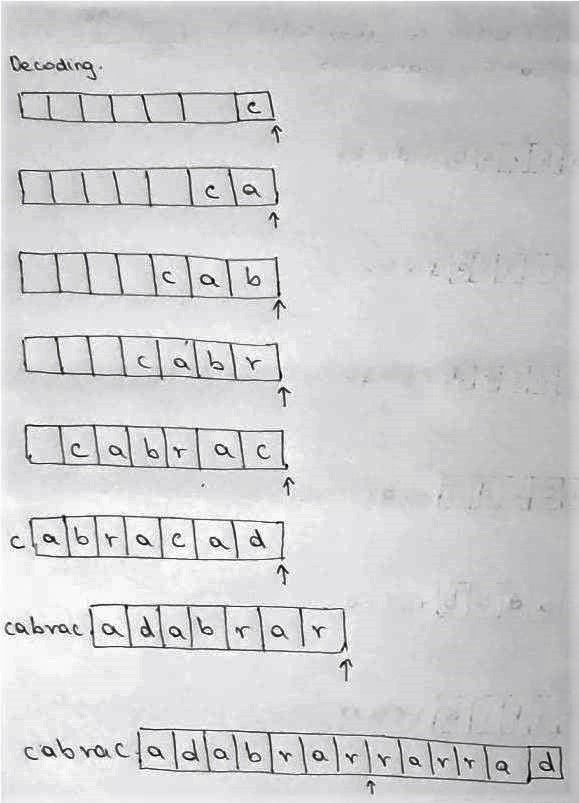 Decoding.
c
c a
c a b
c a b r
c a b r a c
c a b r a c a d
cabrac a d a b r a r
cabrac a d a b r a r r a r r a d